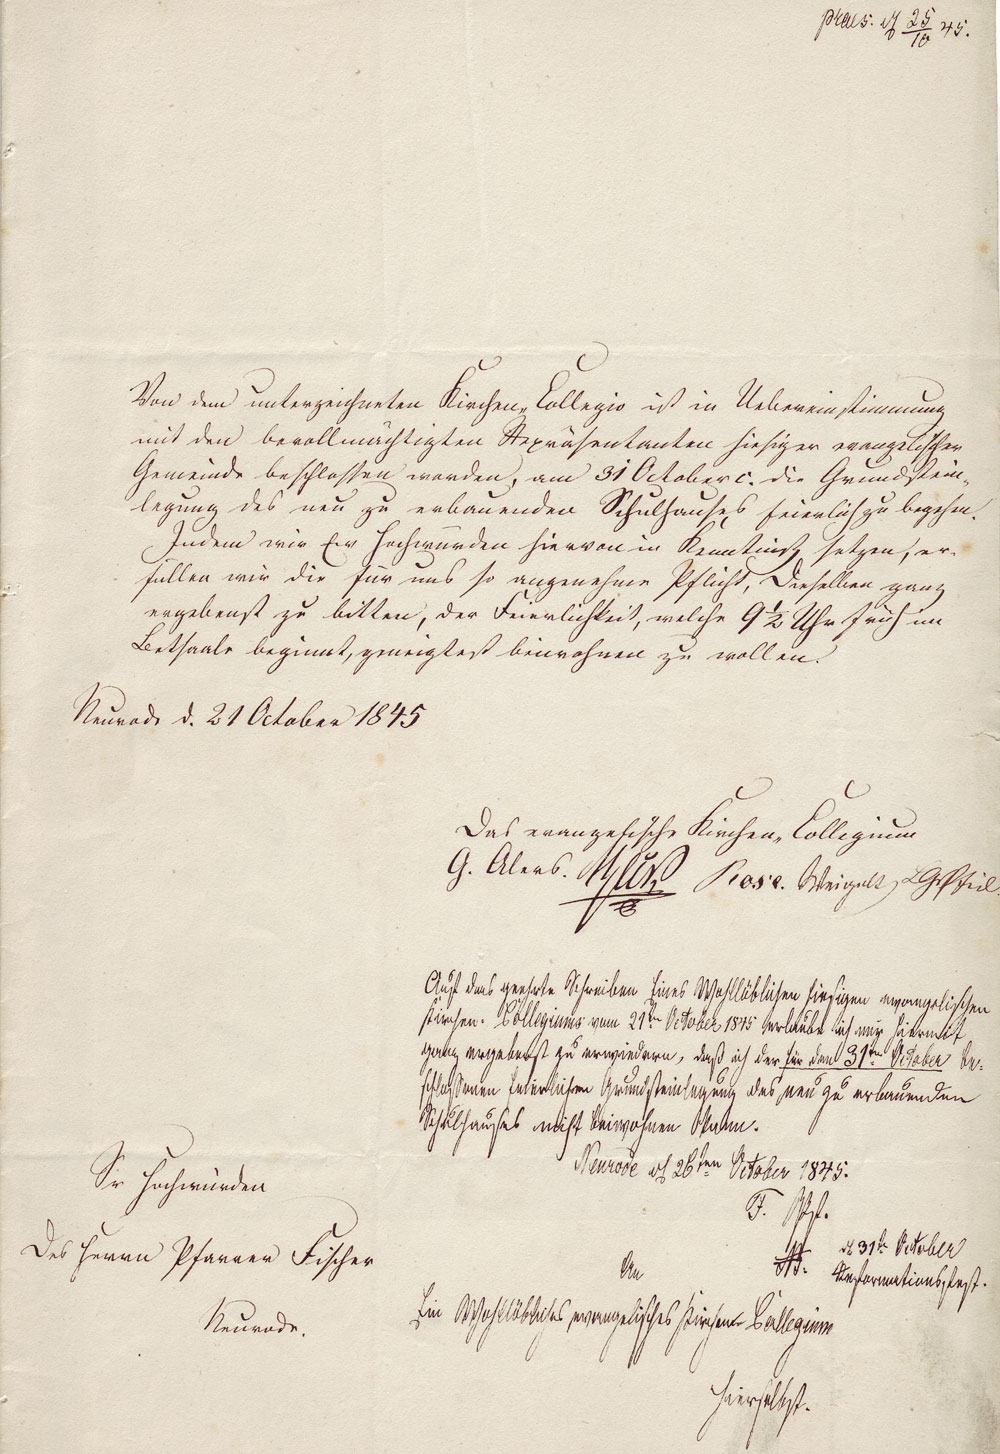 praes. d 25/10 45.
Von dem unterzeichneten Kirchen-Collegio ist in Uebereinstimmung
mit den bevollmächtigten Repräsentanten hiesiger evangelischer
Gemeinde beschlossen worden, am 31 October c. die Grundstein-
legung des neu zu erbauenden Schulhauses feierlich zu begehen.
Indem wir Ew Hochwürden hiervon in Kenntniß setzen, er-
füllen wir die für uns so angenehme Pflicht, Dieselben ganz
ergebenst zu bitten, der Feierlichkeit, welche 9 1/2 Uhr früh im
Betsaale beginnt, geneigtest beiwohnen zu wollen.
Neurode d. 21 October 1845
Das evangelische Kirchen-Collegium
G. Alers. Rose. Weigelt
Auf das geehrte Schreiben Eines Wohllöblichen hiesigen evangelischen
Kirchen-Collegiums vom 21ten October 1845 erlaube ich mir hiermit
ganz ergebenst zu erwiedern, daß ich der für den 31ten October be-
schlossenen feierlichen Grundsteinlegung des neu zu erbauenden
Schulhauses nicht beiwohnen kann.
Neurode d 26ten October 1845.
F. Pf.
d 31t October
Reformationsfest.
An
Ein Wohllöbliches evangelisches Kirchen-Collegium
hierselbst.
Sr Hochwürden
Des Herrn Pfarrer Fischer
Neurode.